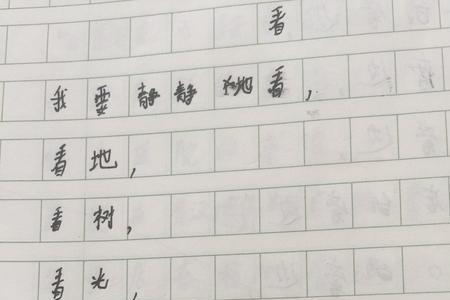 看
我要静静地看，
看地，
看树，
看光，